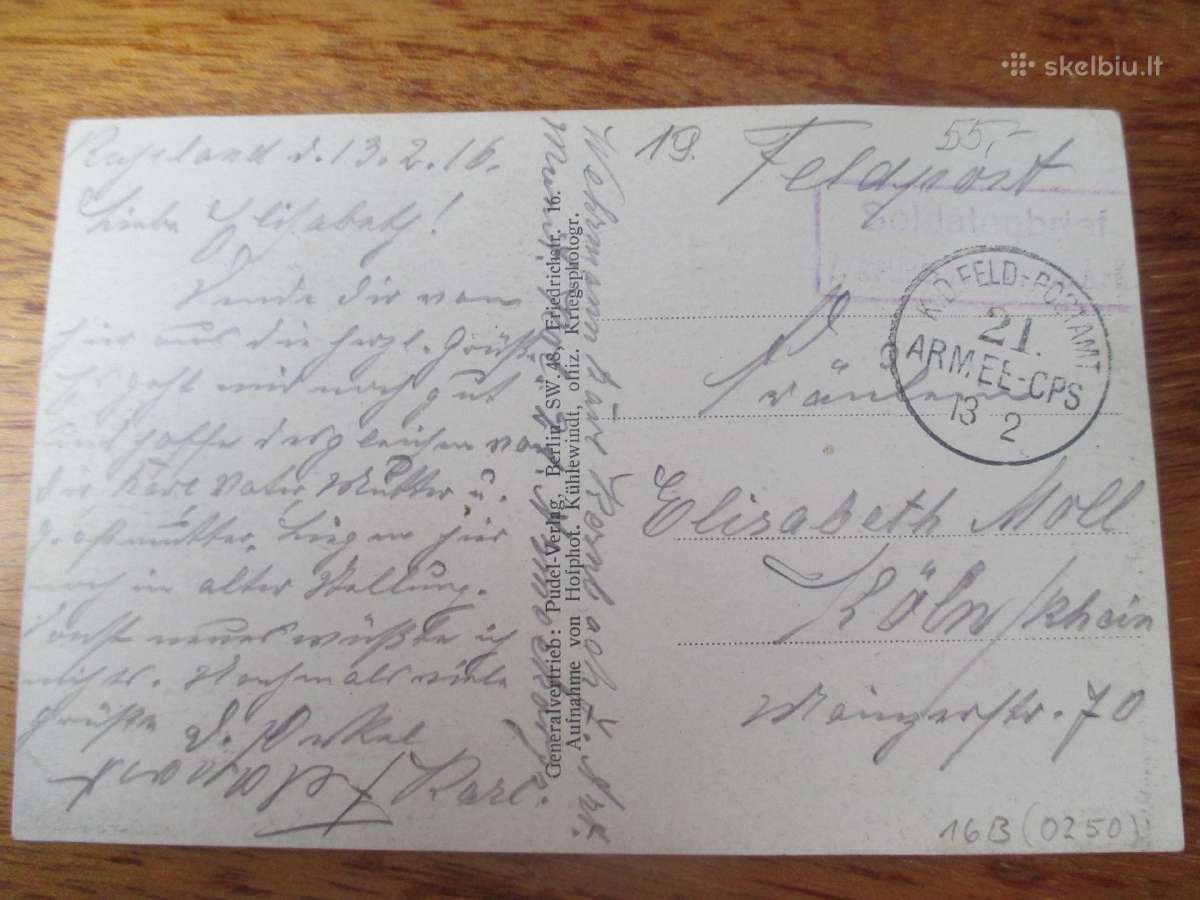 skelbiu.lt
Russland d. 13.2.16.
Liebe Elisabeth!
Sende dir von
hier aus die herzl. Grüße
Es geht mir noch gut
und hoffe desgleichen von
dir Karl Vater Mutter u.
Großmutter. Liegen hier
noch in alter Stellung.
Sonst neues wüßte ich
nichts. Nochmals viele
Grüße d. Onkel
Karl.
Generalvertrieb: Pudel-Verlag, Berlin SW. 48, Friedrichstr. 16.
Aufnahme von Hofphot. Kühlewindt, offiz. Kriegsphotogr.
Wehrmann Karl
19.
Feldpost
55,-
Soldatenbrief
K.D. FELD-POSTAMT
21.
ARMEE-CPS
13 2
Fräulein
Elisabeth Moll
Köln/Rhein
Mainzerstr. 70
16B (0250)